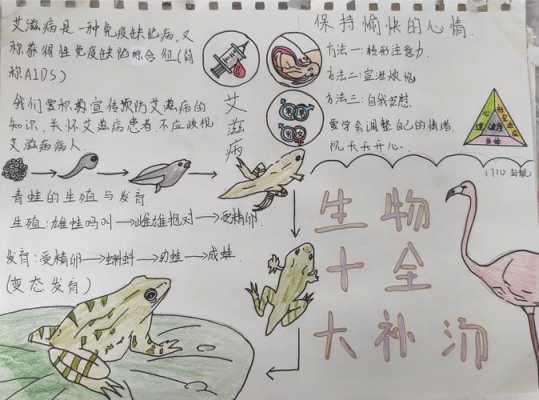 艾滋病是一种免疫缺陷病,又
称获得性免疫缺陷综合征(简
称AIDS)
我们要积极宣传预防艾滋病的
知识,关怀艾滋病患者不应歧视
艾滋病病人
艾滋病
保持愉快的心情
方法一:转移注意力
方法二:宣泄烦恼
方法三:自我安慰
要学会调整自己的情绪,
青蛙的生殖与发育
生殖:雄蛙鸣叫→雌雄抱对→受精卵
发育:受精卵→蝌蚪→幼蛙→成蛙
(变态发育)
1710
生物
十全
大补汤